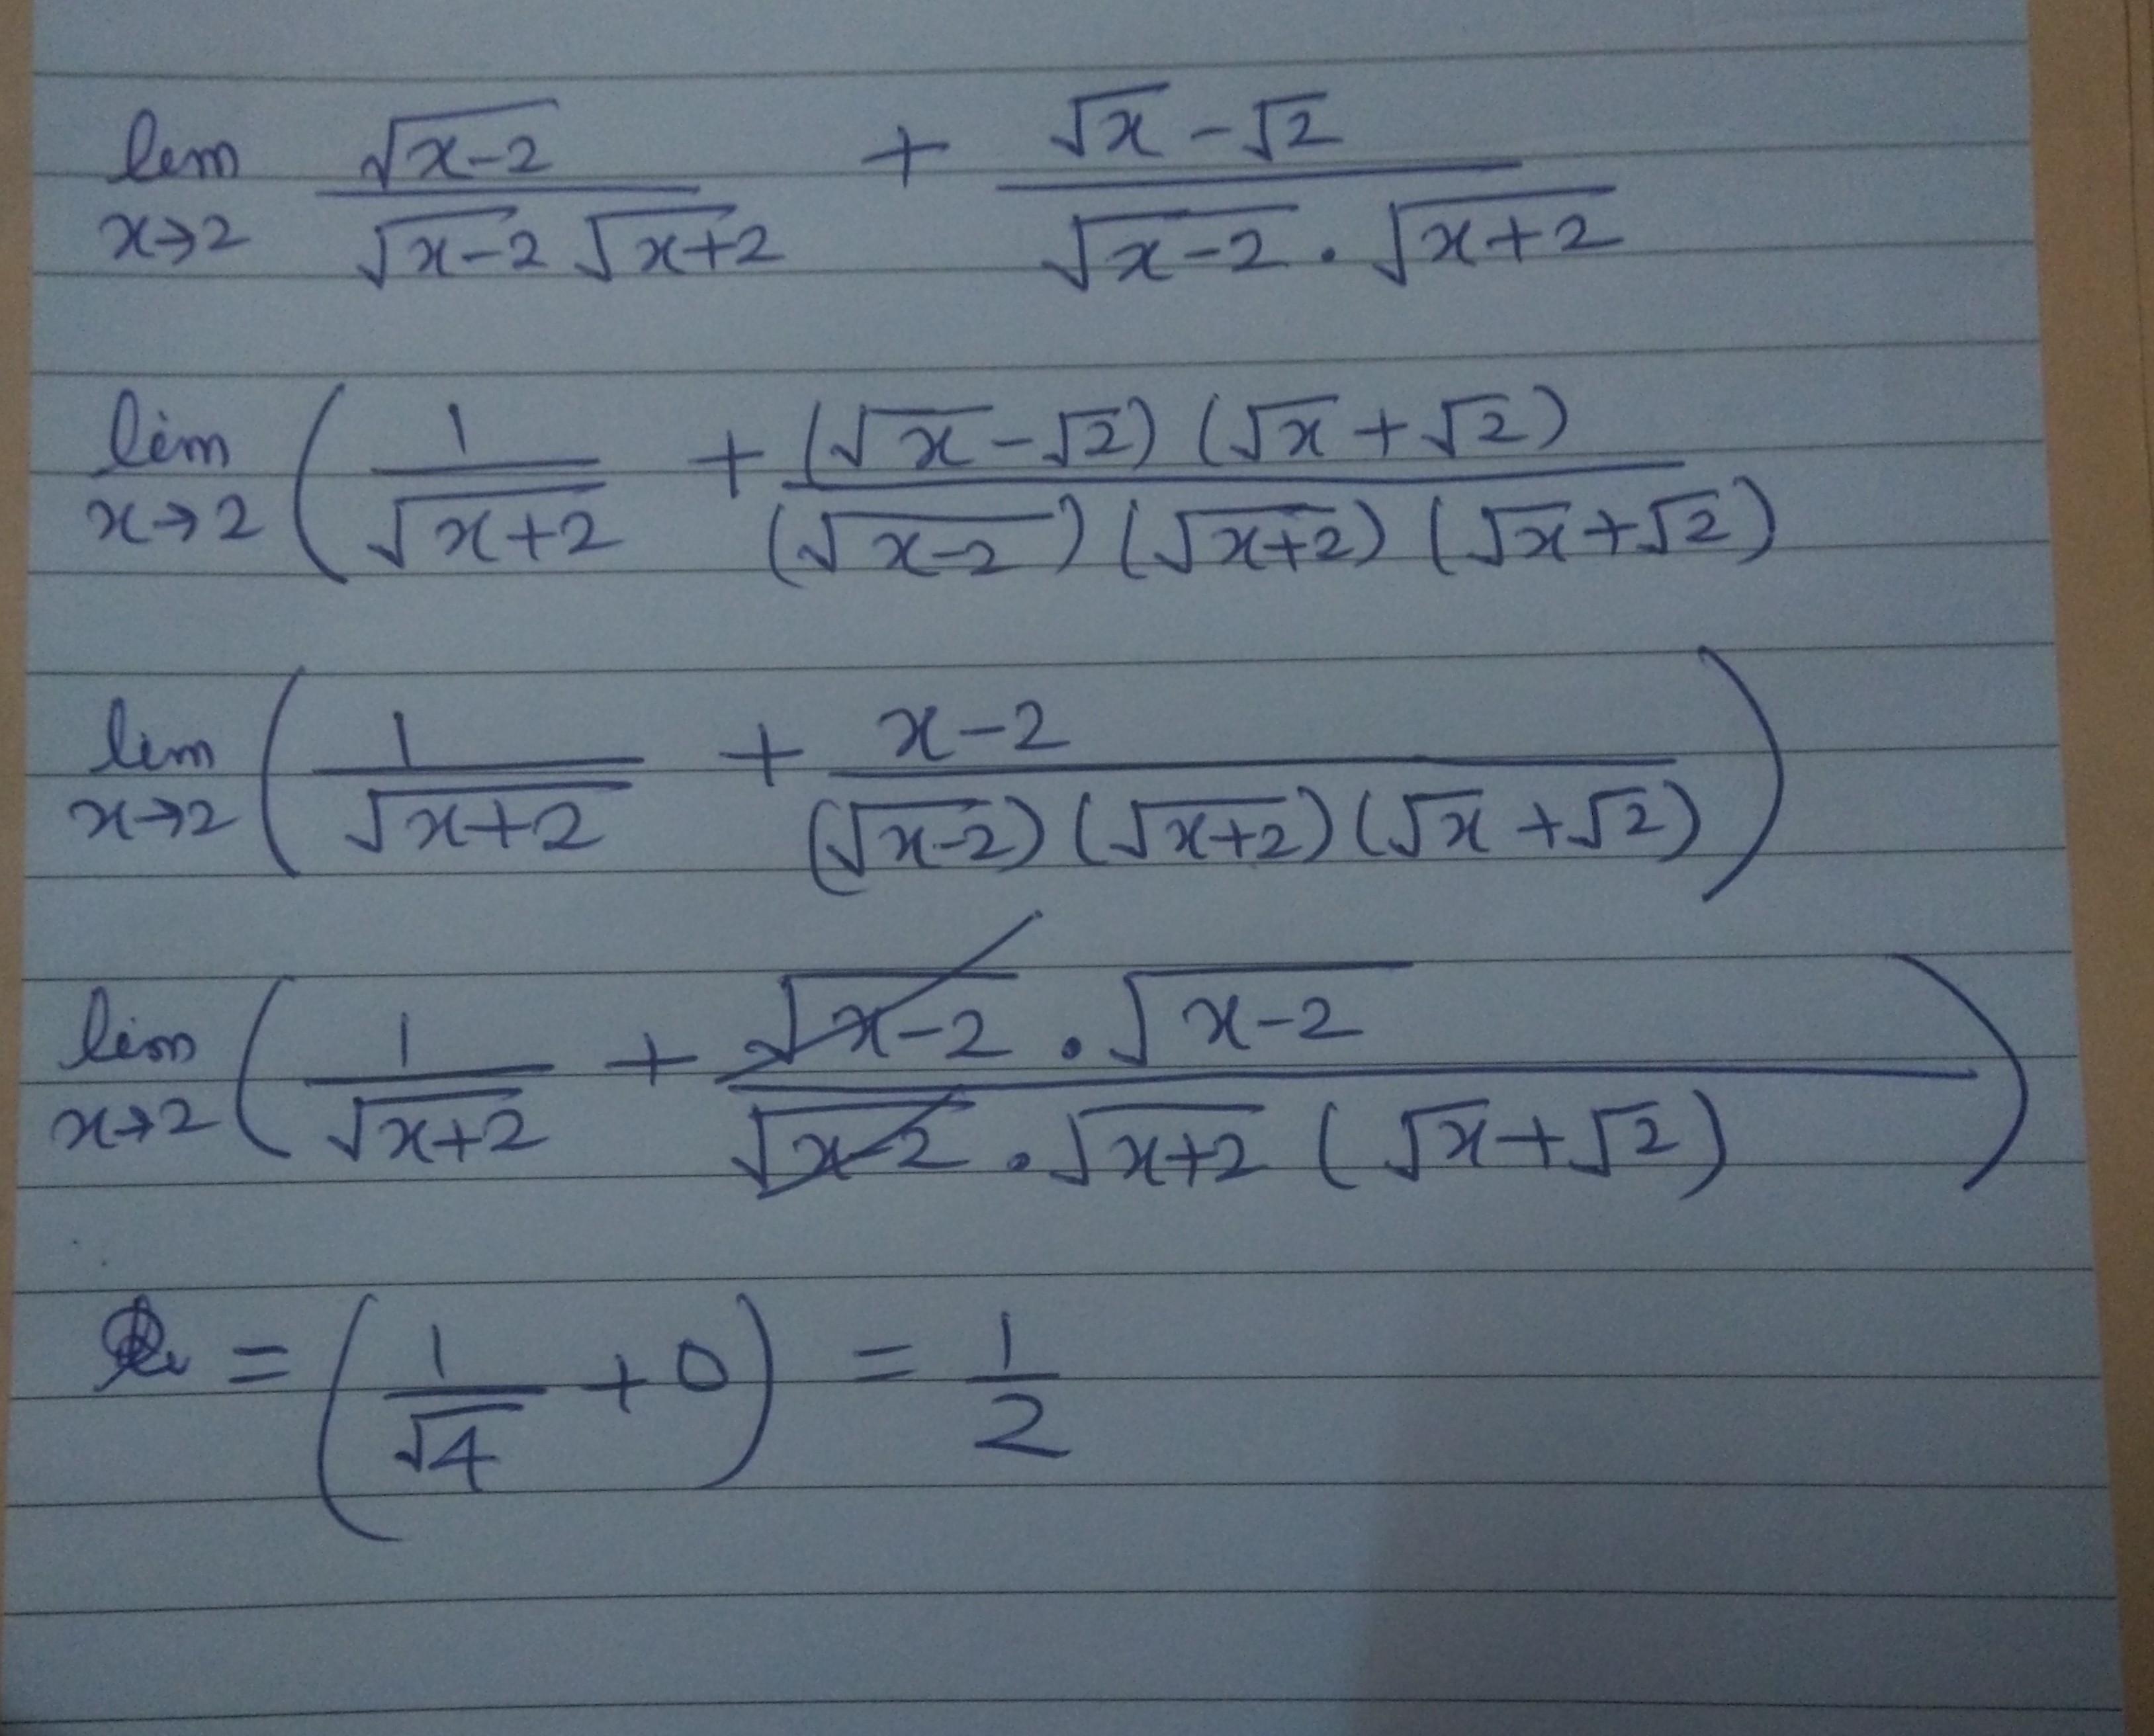 lim x→2 √(x-2) / (√(x-2) √(x+2)) + (√x - √2) / (√(x-2) . √(x+2))
lim x→2 ( 1/√(x+2) + (√x - √2) (√x + √2) / (√(x-2)) (√(x+2)) (√x + √2)
lim x→2 ( 1/√(x+2) + x-2 / (√(x-2)) (√(x+2)) (√x + √2) )
lim x→2 ( 1/√(x+2) + √(x-2) . √(x-2) / √(x-2) . √(x+2) ( √x + √2 ) )
= ( 1/√4 + 0 ) = 1/2